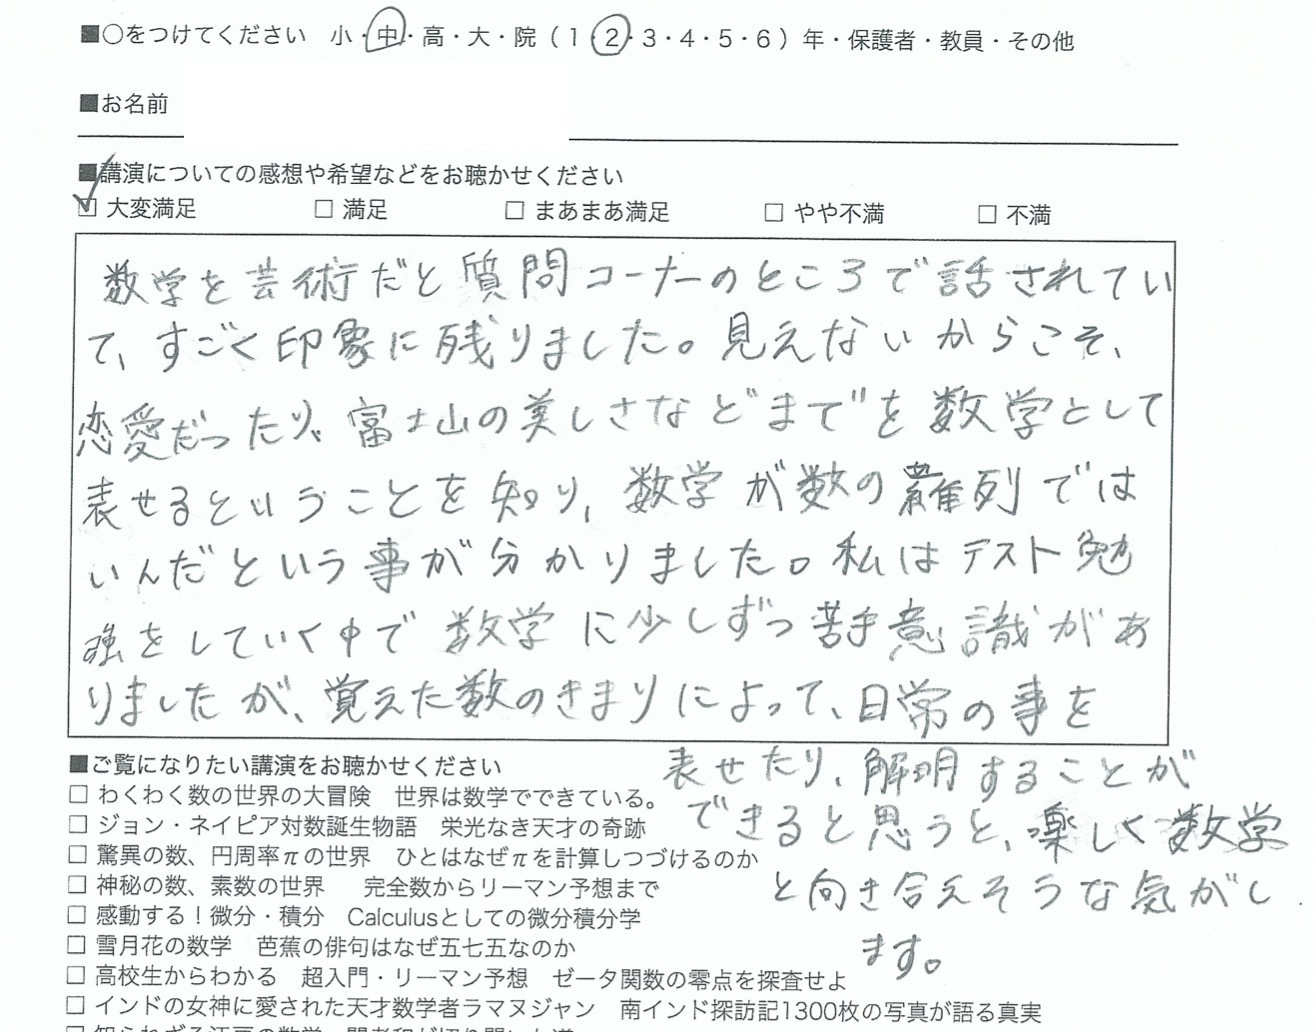 ■○をつけてください 小・中・高・大・院（1・2・3・4・5・6）年・保護者・教員・その他
■お名前
■講演についての感想や希望などをお聴かせください
☑ 大変満足 □ 満足 □ まあまあ満足 □ やや不満 □ 不満
数学を芸術だと質問コーナーのところで話されてい
て、すごく印象に残りました。見えないからこそ、
恋愛だったり、富士山の美しさなどまでを数学として
表せるということを知り、数学が数の羅列では
いんだという事が分かりました。私はテスト勉
強をしていく中で数学に少しずつ苦手意識があ
りましたが、覚えた数のきまりによって、日常の事を
表せたり、解明することが
できると思うと、楽しく数学
と向き合えそうな気がし
ます。
■ご覧になりたい講演をお聴かせください
□ わくわく数の世界の大冒険 世界は数学でできている。
□ ジョン・ネイピア対数誕生物語 栄光なき天才の奇跡
□ 驚異の数、円周率πの世界 ひとはなぜπを計算しつづけるのか
□ 神秘の数、素数の世界 完全数からリーマン予想まで
□ 感動する！微分・積分 Calculusとしての微分積分学
□ 雪月花の数学 芭蕉の俳句はなぜ五七五なのか
□ 高校生からわかる 超入門・リーマン予想 ゼータ関数の零点を探査せよ
□ インドの女神に愛された天才数学者ラマヌジャン 南インド探訪記1300枚の写真が語る真実